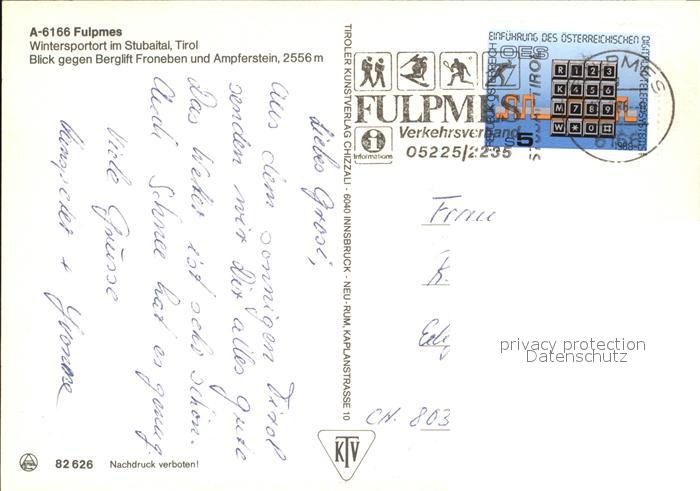 A-6166 Fulpmes
Wintersportort im Stubaital, Tirol
Blick gegen Berglift Froneben und Ampferstein, 2556 m
Liebes Grosi,
Aus dem sonnigen Tirol
senden wir Dir alles Gute
Das Wetter ist sehr schön.
Auch Schnee hat es genug.
Viele Grüsse
+ Yvonne
82 626 Nachdruck verboten!
TIROLER KUNSTVERLAG CHIZZALI · 6040 INNSBRUCK - NEU-RUM, KAPLANSTRASSE 10
KTV
FULPMES
Verkehrsverband
05225/2235
Informations
EINFÜHRUNG DES ÖSTERREICHISCHEN
DIGITALTELEFONSYSTEMS
REPUBLIK ÖSTERREICH
OES
R 1 2 3
K 4 5 6
M 7 8 9
W * 0
S 5
TIROL
Frau
K.
privacy protection
Datenschutz
CH. 803